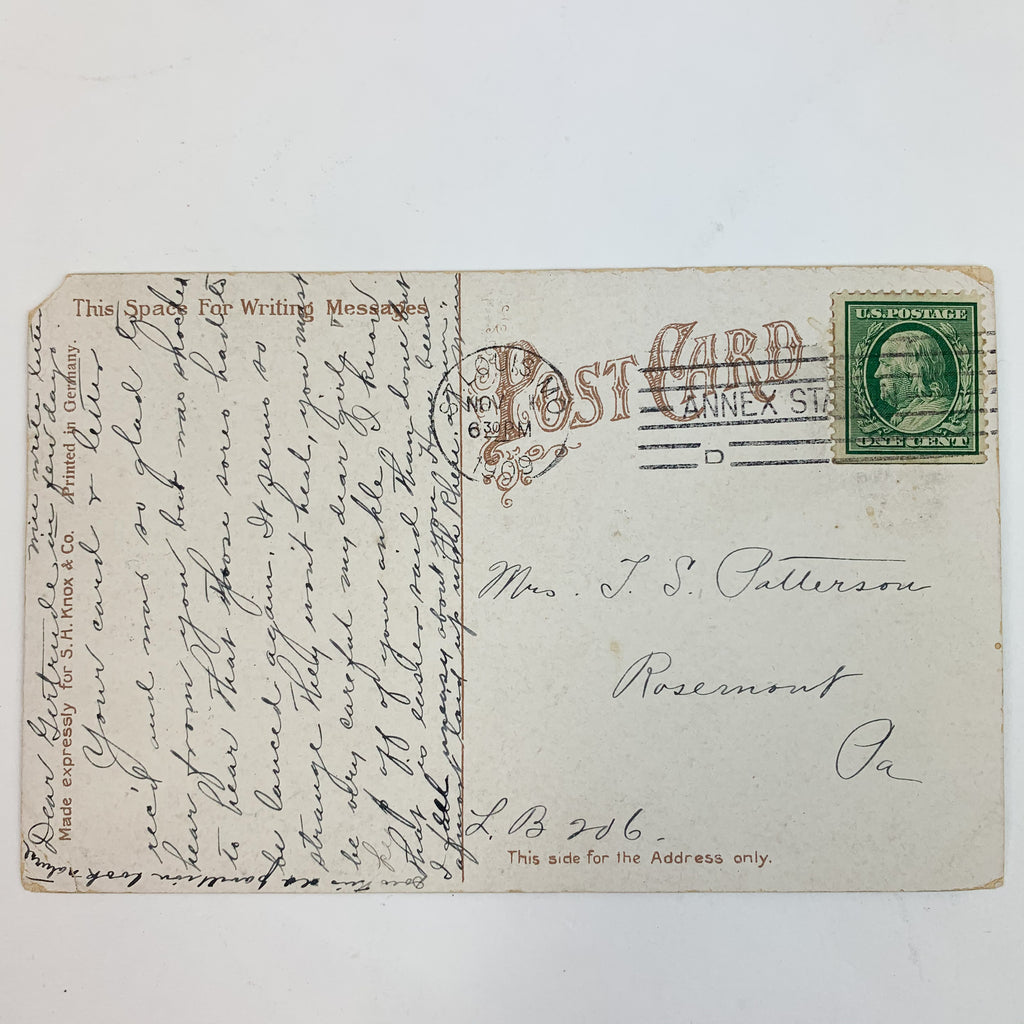 This Space For Writing Messages
Made expressly for S.H. Knox & Co. Printed in Germany.
will write
in few days
Dear Gertrude
Your card & letter
rec'd and was so glad to
hear from you but was shocked
to hear that those sores had to
be lanced again. It seems so
strange they won't heal, you must
be very careful my dear girl &
keep off of your ankle. I know
that is easier said than done but
I feel uneasy about you. Have been
almost laid up with
look natural
POST CARD
ST. LOUIS, MO.
NOV
630 PM
1909
ANNEX STA
D
U.S. POSTAGE
ONE CENT
Mrs. T. S. Patterson
Rosemont
Pa
L. B 206.
This side for the Address only.